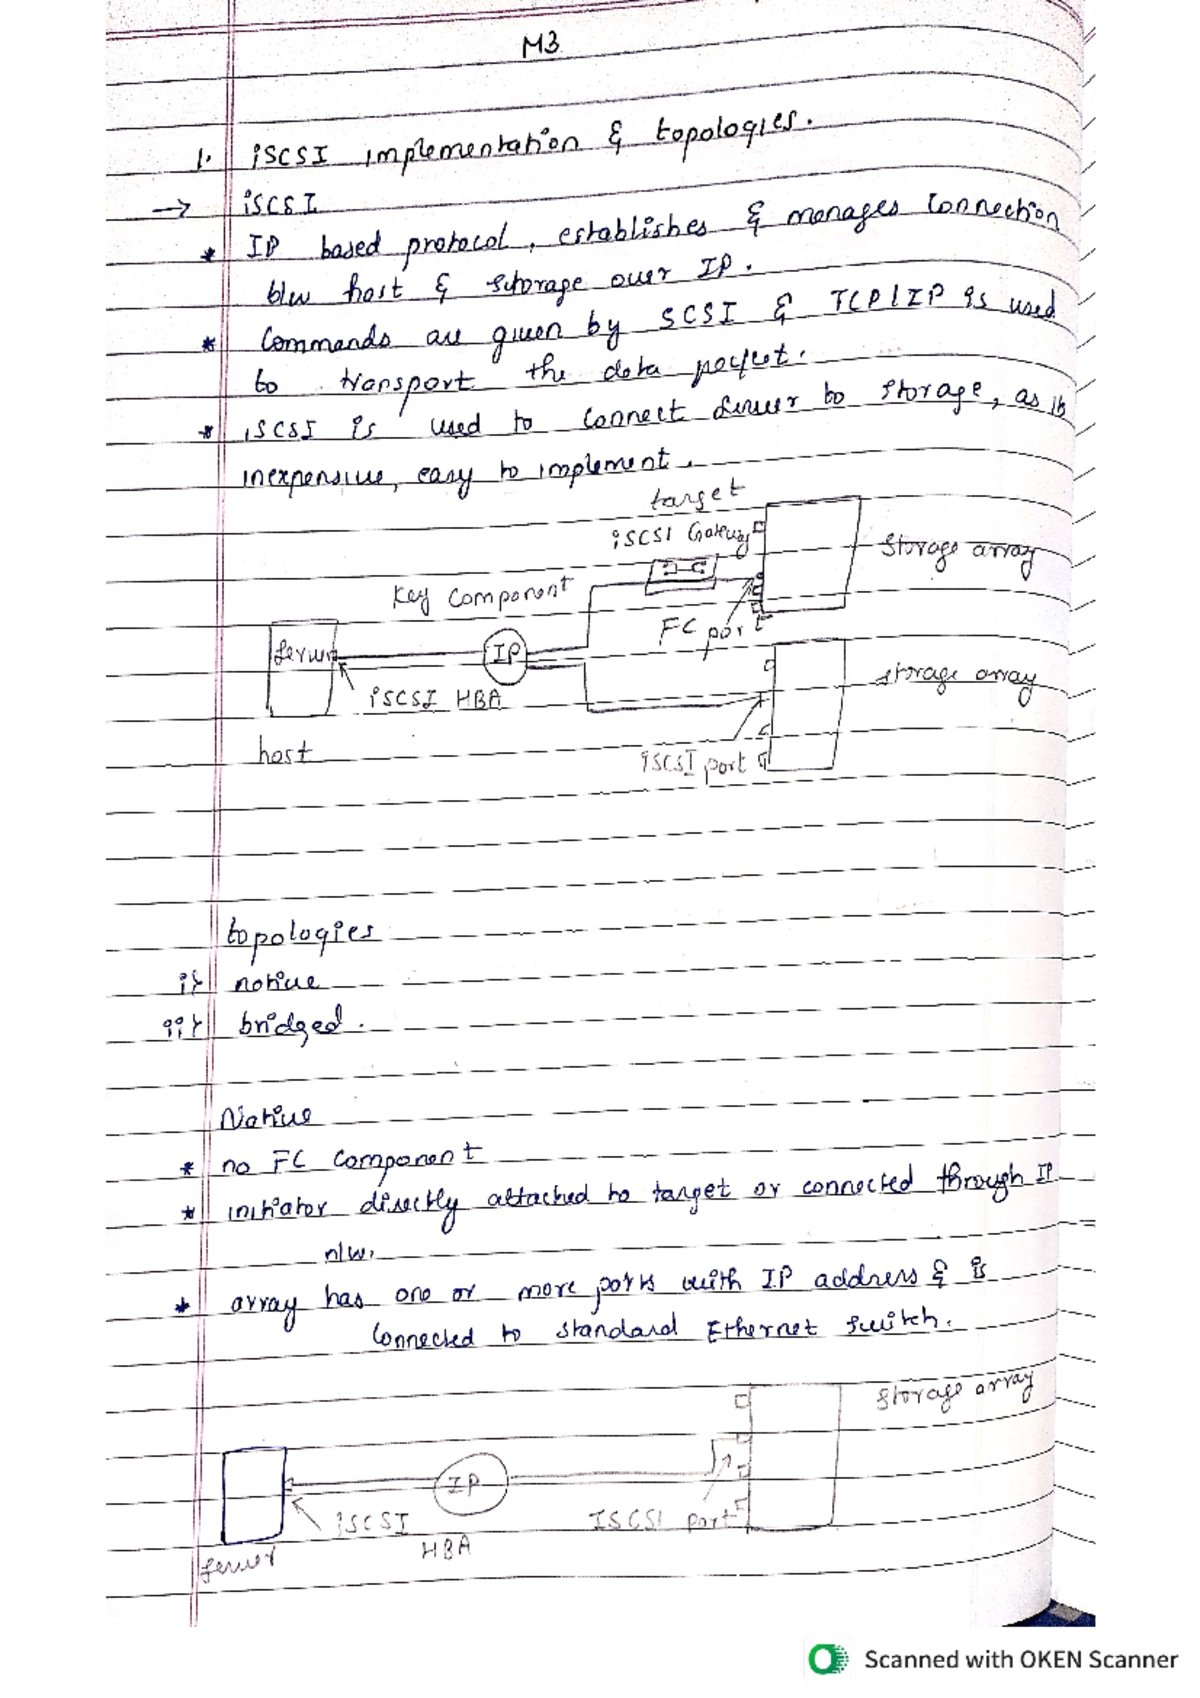 M3
1. iSCSI implementation & topologies.
→ iSCSI
* IP based protocol, establishes & manages connection
b/w host & storage over IP.
* Commands are given by SCSI & TCP/IP is used
to transport the data packet.
* iSCSI is used to connect server to storage, as it
inexpensive, easy to implement.
target
iSCSI Gateway
Storage array
Key component
FC port
server
IP
storage array
iSCSI HBA
host
iSCSI port
topologies
i} native
ii} bridged.
Native
* no FC component
* initiator directly attached to target or connected through IP
n/w.
* array has one or more ports with IP address & is
connected to standard Ethernet switch.
Storage array
IP
iSCSI
HBA
ISCSI port
server
Scanned with OKEN Scanner